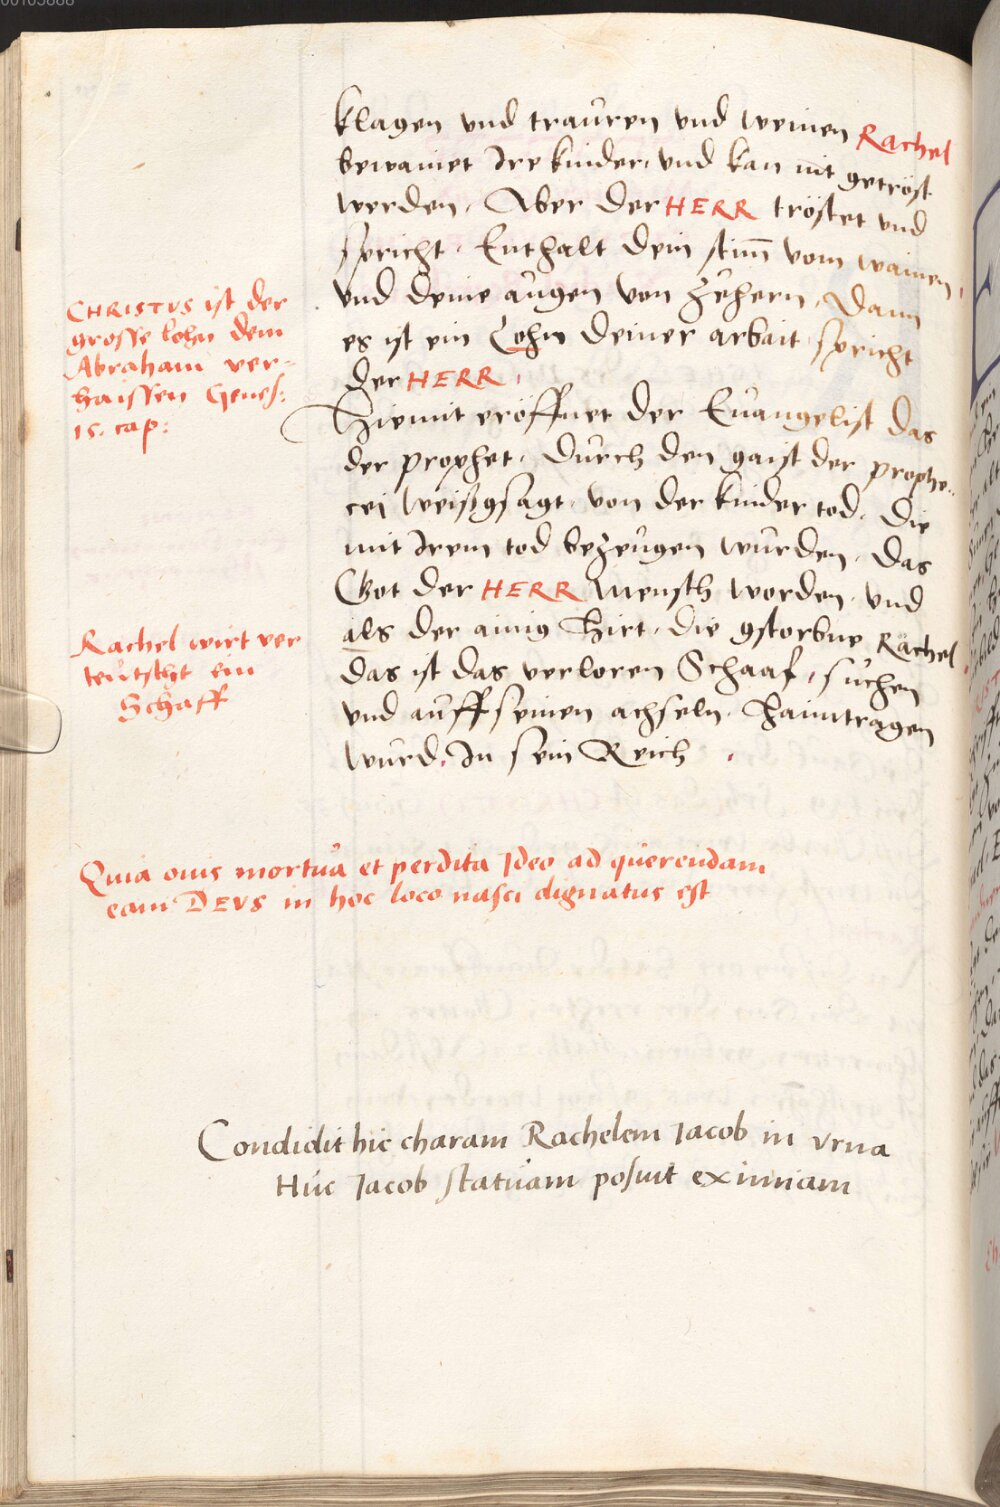 klagen vnd trauren vnd weinen Rachel
bewainet Ire kinder, vnd kan nit getröst
werden. Aber der HERR tröstet vnd
spricht. Enthalt dein stim̅ vom wainen,
vnd deine augen von Zehern. Dann
es ist ein Lohn deiner arbait spricht
der HERR.
CHRISTVS ist der
grosse lohn dem
Abraham ver-
haissen Genes:
15. cap:
Hiemit eröffnet der Euangelist das
der prophet. durch den gaist der prophe-
cei Weissgsagt. von der kinder tod. die
mit Irem tod bezeugen wurden. das
Got der HERR Mensch worden. vnd
als der ainig Hirt. die gstorbne Rachel
das ist das verloren Schaaf, suchen
vnd auff seinen achseln. haimtragen
wurd. In sein Reich.
Rachel wirt ver
teutscht ein
Schaff
Quia ouis mortua et perdita Ideo ad querendam
eam DEVS in hoc loco nasci dignatus est
Condidit hic charam Rachelem Iacob in vrna
Huic Iacob statuam posuit eximiam